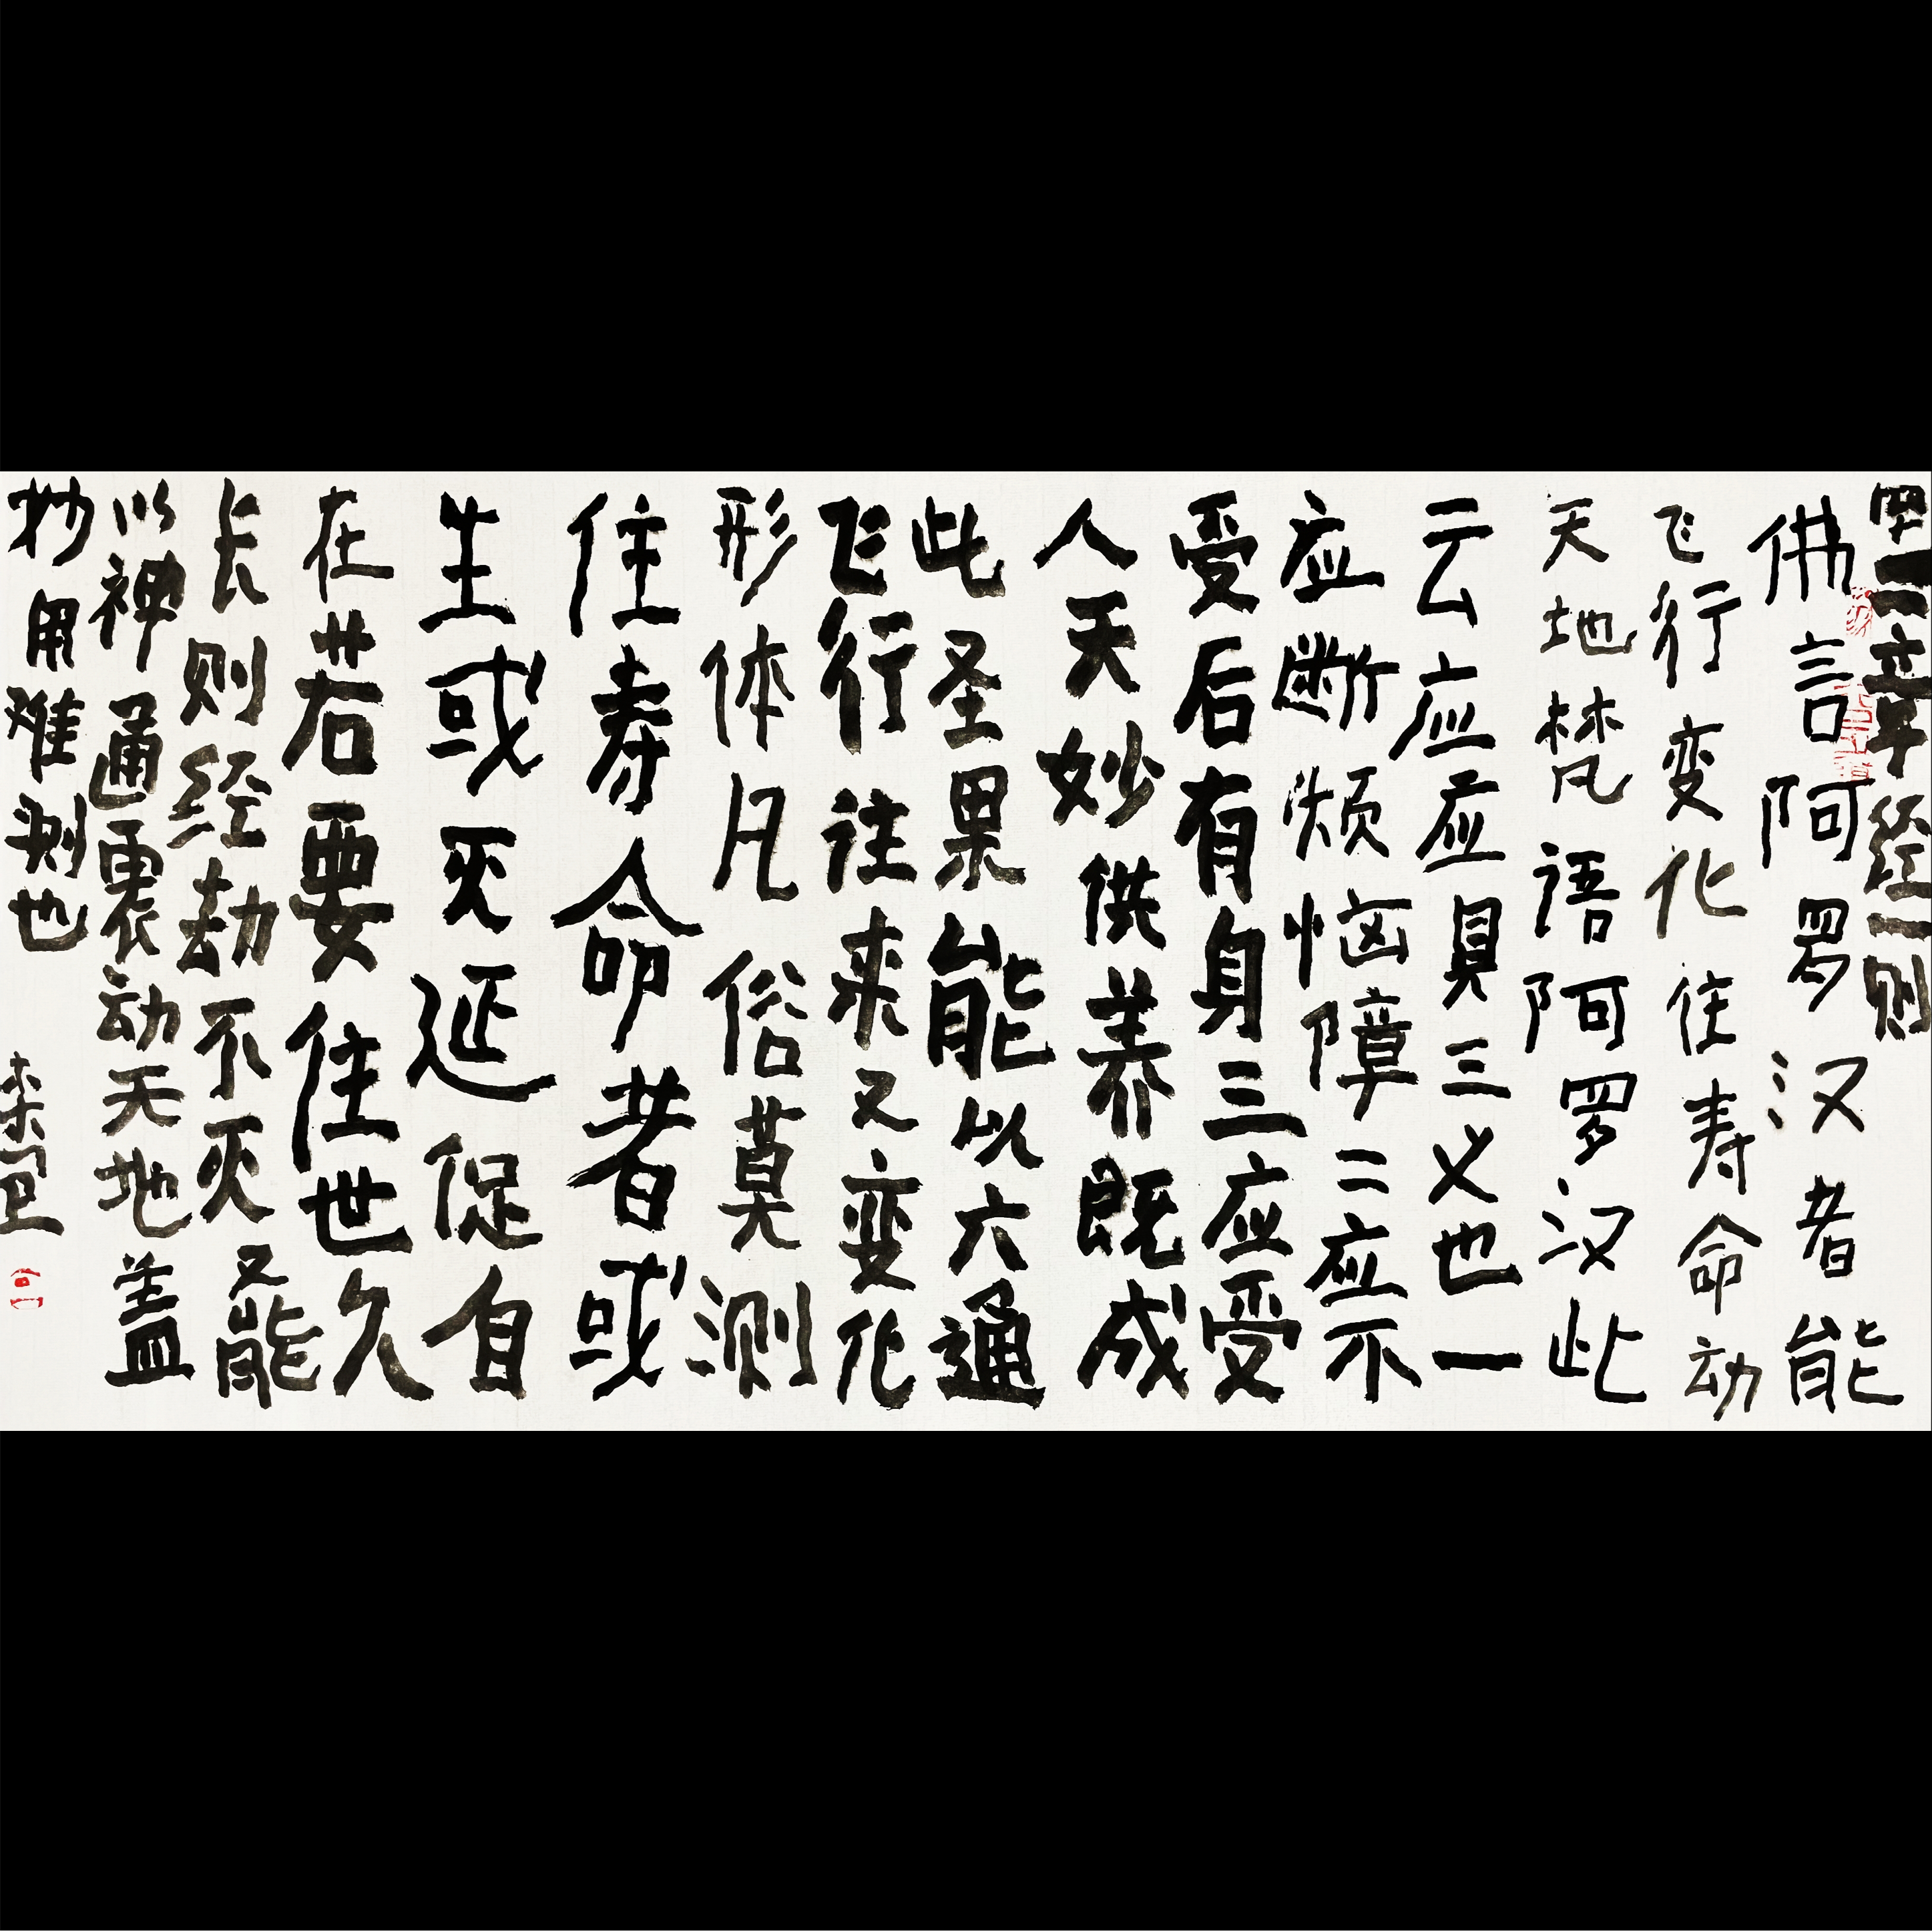 四二章经一则
佛言阿罗汉者能
飞行变化住寿命动
天地梵语阿罗汉此
云应应具三义也一
应断烦恼障二应不
受后有身三应受
人天妙供养既成
此圣果能以六通
飞行往来又变化
形体凡俗莫测
住寿命者或
生或灭延促自
在若要住世久
长则经劫不灭又能
以神通震动天地盖
妙用难测也